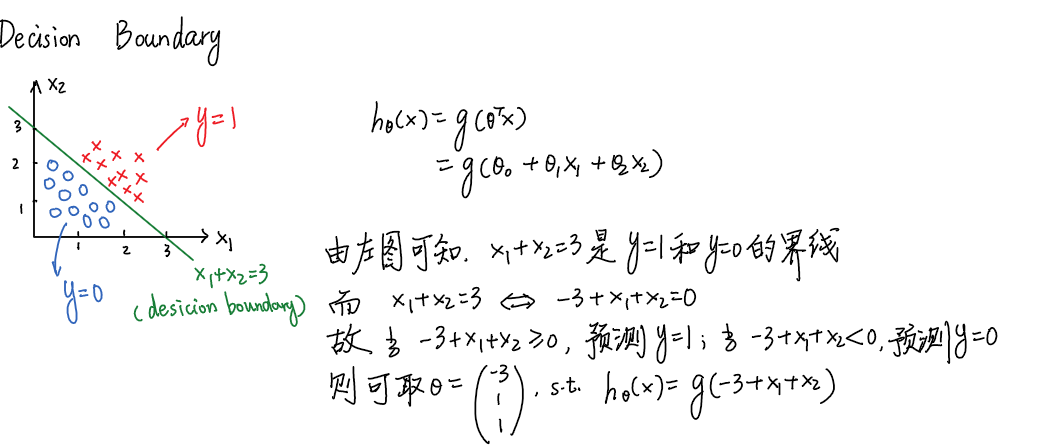 Decision Boundary
x₂
3
2
1
1 2 3 x₁
y=1
y=0
x₁+x₂=3
(desicion boundary)
h_θ(x)=g(θᵀx)
=g(θ₀+θ₁x₁+θ₂x₂)
由左图可知. x₁+x₂=3是y=1和y=0的界线
而 x₁+x₂=3 ⇔ -3+x₁+x₂=0
故 当 -3+x₁+x₂≥0, 预测y=1; 当 -3+x₁+x₂<0, 预测y=0
则可取θ=(-3 1 1), s.t. h_θ(x)=g(-3+x₁+x₂)